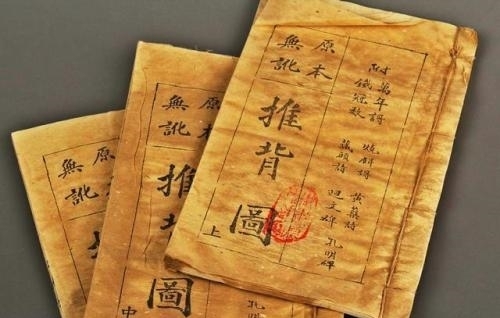 附
萬年謌 燒餅謌 黃蘗詩
鐵冠數 藏頭詩 孔明碑
原本
無訛
推背圖
上
原
無訛
推
圖
中
孔明
原
無訛